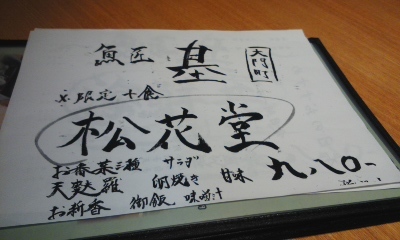 魚匠 基 大門町
限定十食
松花堂
お番菜三種 サラダ
天麩羅 網焼き 甘味 九八〇-
お新香 御飯 味噌汁